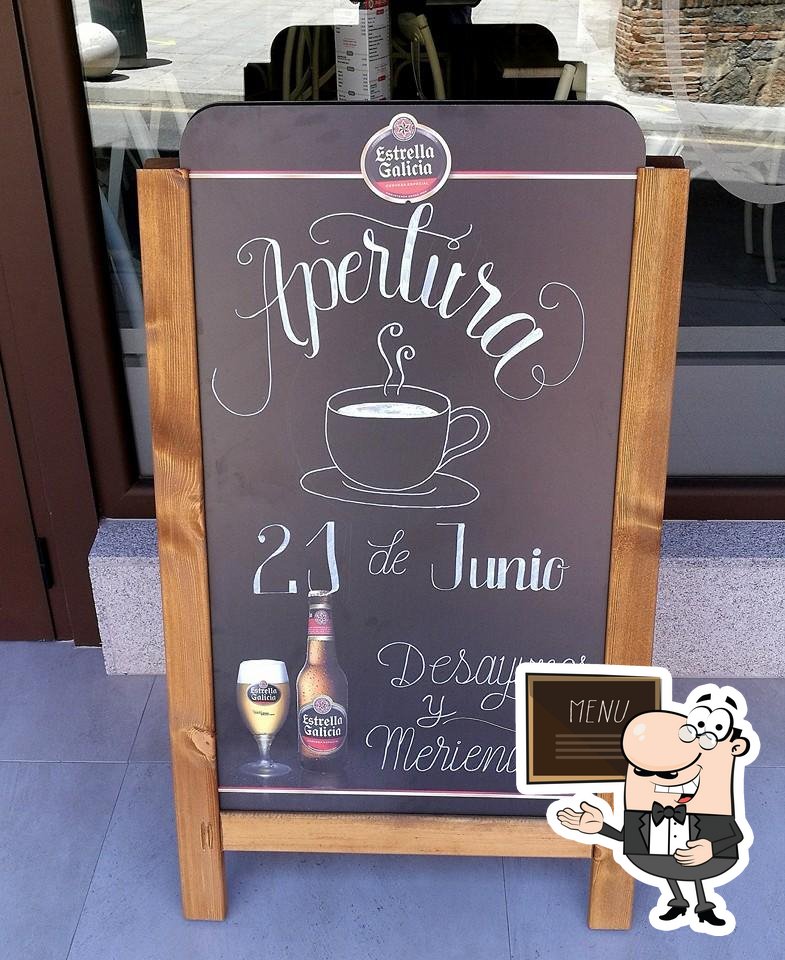 Estrella
Galicia
CERVEZA ESPECIAL
Apertura
21 de Junio
Estrella
Galicia
Estrella
Galicia
y
MENU